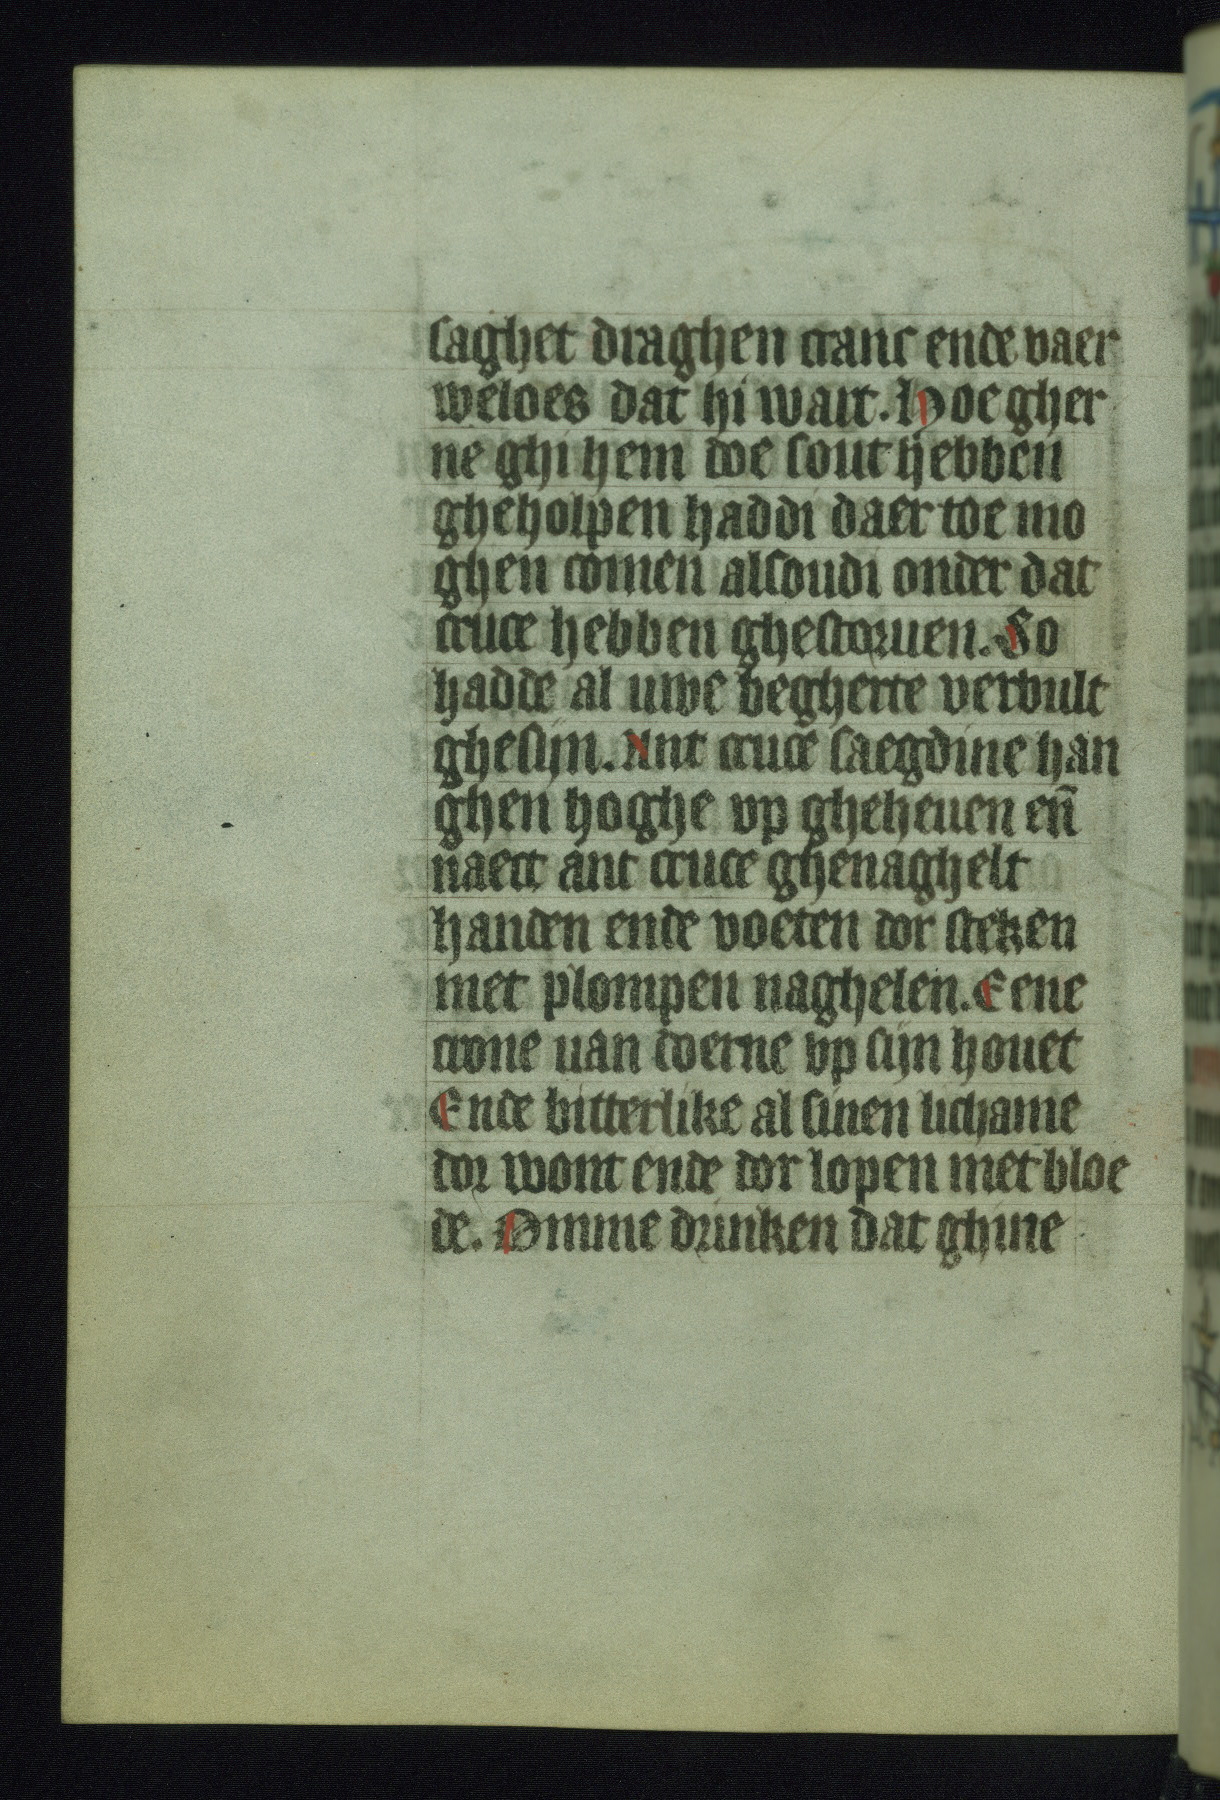 saghet draghen cranc ende vaer
weloes dat hi wart. Hoe gher
ne ghi hem doe sout hebben
gheholpen haddi daer toe mo
ghen comen alsoudi onder dat
cruce hebben ghestoruen. So
hadde al uwe begherte vervult
ghesijn. Ant cruce saegdine han
ghen hoghe vp gheheuen eñ
naect ant cruce ghenaghelt
handen ende voeten dor steken
met plompen naghelen. Eene
crone uan doerne vp sijn houet
Ende bitterlike al sinen lichame
dor wont ende dor lopen met bloe
de. Omme drinken dat ghine